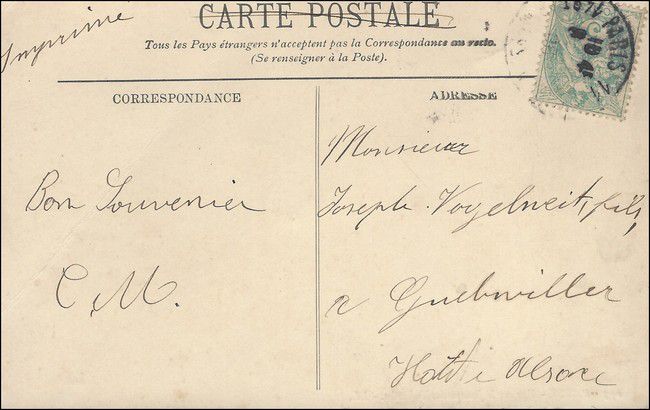 CARTE POSTALE
Imprimé
Tous les Pays étrangers n'acceptent pas la Correspondance au recto.
(Se renseigner à la Poste).
CORRESPONDANCE
ADRESSE
Bon Souvenir
C. M.
Monsieur
Joseph Vogelweit, fils,
a Guebwiller
Alsace
PARIS